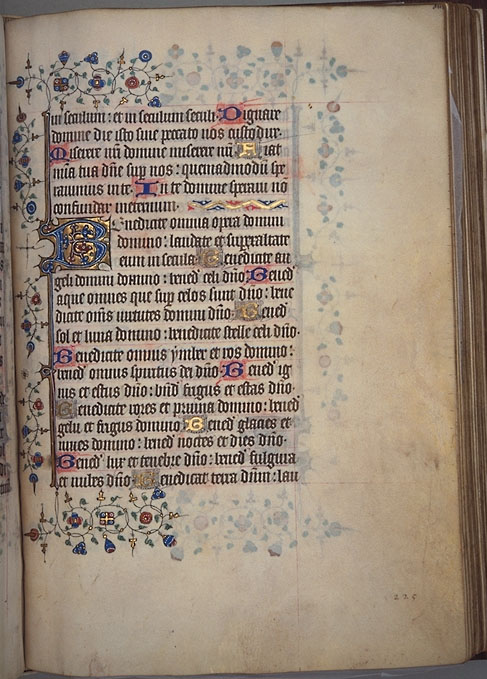 in seculum: et in seculum seculi. Dignare
domine die isto sine peccato nos custodire.
Miserere nr̄i domine miserere nr̄i. Fiat
mīa tua dn̄e sup nos: quemadmodū spe
rauimus in te. In te domine speraui nō
confundar in eternum.
Benedicite omnia opera domini
domino: laudate et superexaltate
eum in secula. Benedicite an
geli domini domino: bened celi dn̄o. Bened
aque omnes que sup celos sunt dn̄o: bene
dicite om̄s uirtutes domini dn̄o. Bened
sol et luna domino: benedicite stelle celi dn̄o.
Benedicite omnis ymber et ros domino:
bened omnis spiritus dei dn̄o. Bened ig
nis et estus dn̄o: bn̄d frigus et estas dn̄o.
Benedicite rores et pruina domino: bened
gelu et frigus domino. Bened glacies et
niues domino: bened noctes et dies dn̄o.
Bened lux et tenebre dn̄o: bened fulgura
et nubes dn̄o. Benedicat terra dn̄m: lau
225